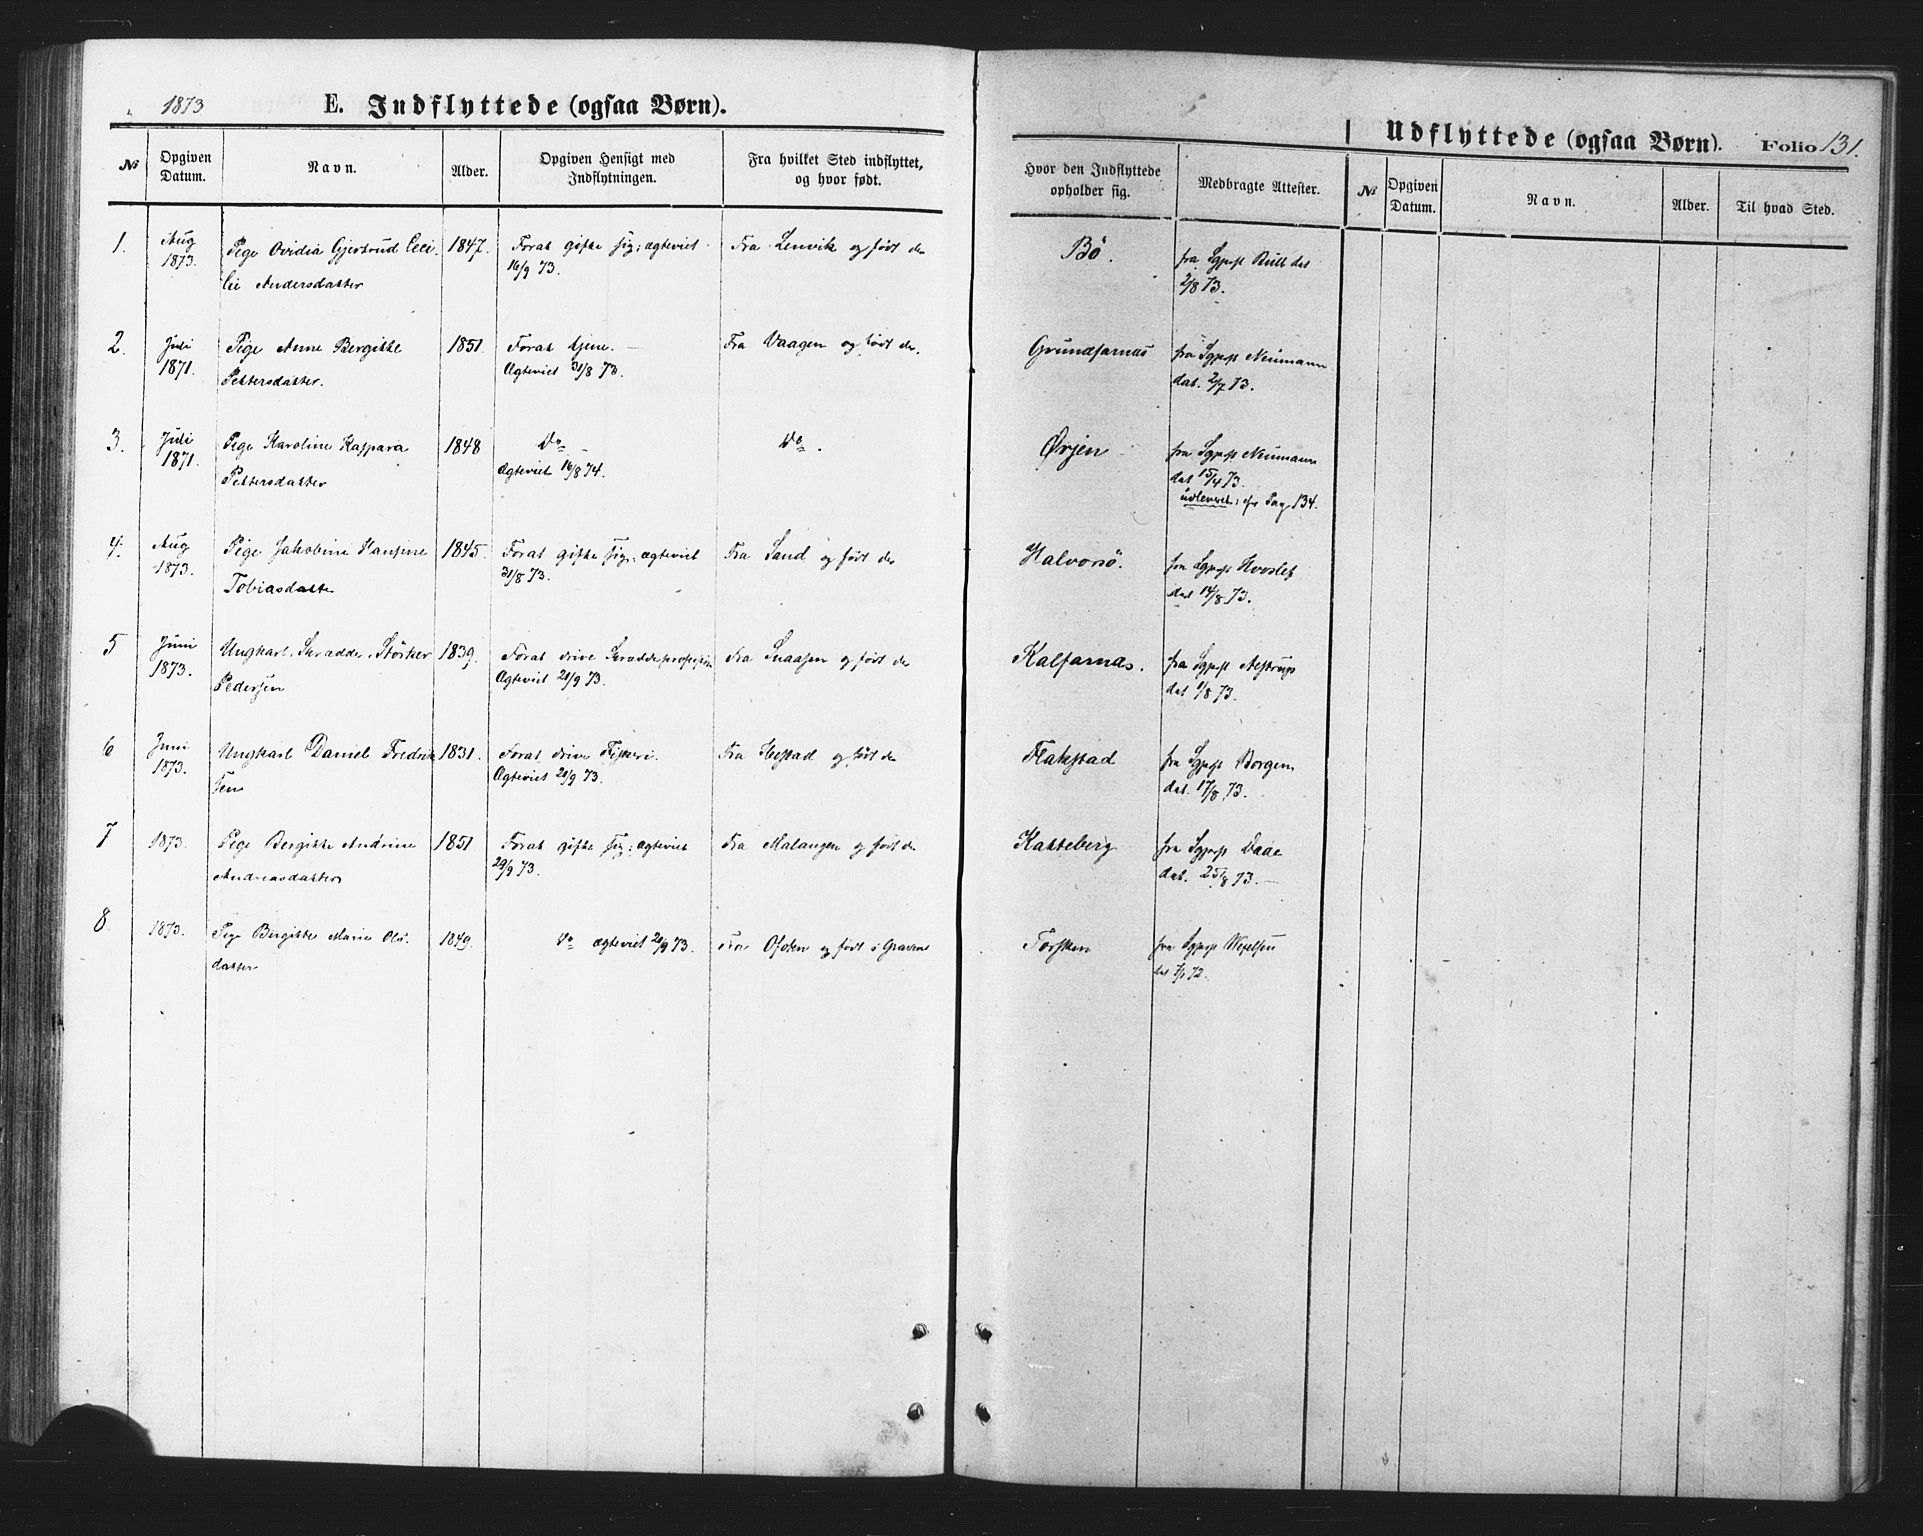 1873 E. Indflyttede (ogsaa Børn).
№ Opgiven Datum. Navn. Alder. Opgiven Hensigt med Indflytningen. Fra hvilket Sted indflyttet, og hvor født.
1. Aug 1873. Pige Ovidia Gjertrud Ceci- 1847. Forat gifte sig; ægteviet Fra Lenvik og født der
lie Andersdatter 16/9 73.
2. Juli 1871. Pige Anne Bergitte 1851. Forat tjene. Fra Vaagen og født der.
Pettersdatter. Ægteviet 31/8 73.
3. Juli 1871. Pige Karoline Kaspara 1848 Do Do.
Pettersdatter Ægteviet 16/8 74.
4. Aug 1873. Pige Jakobine Hansine 1845. Forat gifte sig; ægteviet Fra Sand og født der
Tobiasdatter 31/8 73.
5 Juni 1873. Ungkarl, Skrædder, Störker 1839. Forat drive Skrædderprofession Fra Snaasen og født der
Pedersen Ægteviet 21/9 73.
6 Juni 1873. Ungkarl Daniel Fredrik 1831. Forat drive Fiskeri. Fra Ibestad og født der
Fen Ægteviet 21/9 73.
7 1873. Pige Bergitte Andrine 1851 Forat gifte sig; ægteviet Fra Malangen og født der
Andreasdatter 29/9 73.
8. 1873. Pige Birgitte Marie Ols- 1849. Do Ægteviet 21/9 73. Fra Ofoten og født i Gravene
datter
Udflyttede (ogsaa Børn). Folio 131.
Hvor den Indflyttede opholder sig. Medbragte Attester. № Opgiven Datum. Navn. Alder. Til hvad Sted.
Bö. fra Sgpst Bull dat
2/8 73.
Grundfarnæs fra Sgpst Neumann
dat. 2/7 73.
Ørjen fra Sgpst Neumann
dat 15/4 73.
udleveret; cfr Pag. 134.
Halvorsö. fra Sgpst Hvoslef
dat 14/8 73.
Kalfarnæs. fra Sgpst Astrup
dat 1/8 73.
Flakstad fra Sgpst Borgen
dat. 17/8 73.
Katteberg fra Sgpst Daae
dat. 25/8 73.
Torsken fra Sgpst Wexelsen
dat 7/1 72.